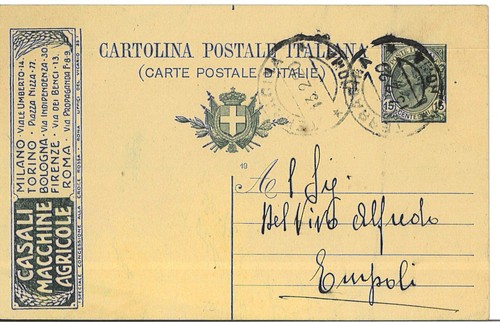 CARTOLINA POSTALE ITALIANA
(CARTE POSTALE D'ITALIE)
15 15
MILANO - VIALE UMBERTO-14.
TORINO - PIAZZA NIZZA-77.
BOLOGNA - VIA INDIPENDENZA-30
FIRENZE - VIA DEI BENCI-13.
ROMA - VIA PROPAGANDA F-8-9.
CASALI
MACCHINE
AGRICOLE
SPECIALE CONCESSIONE ALLA CROCE ROSSA - ROMA
Al Sig.
Del Vivo Alfredo
Empoli